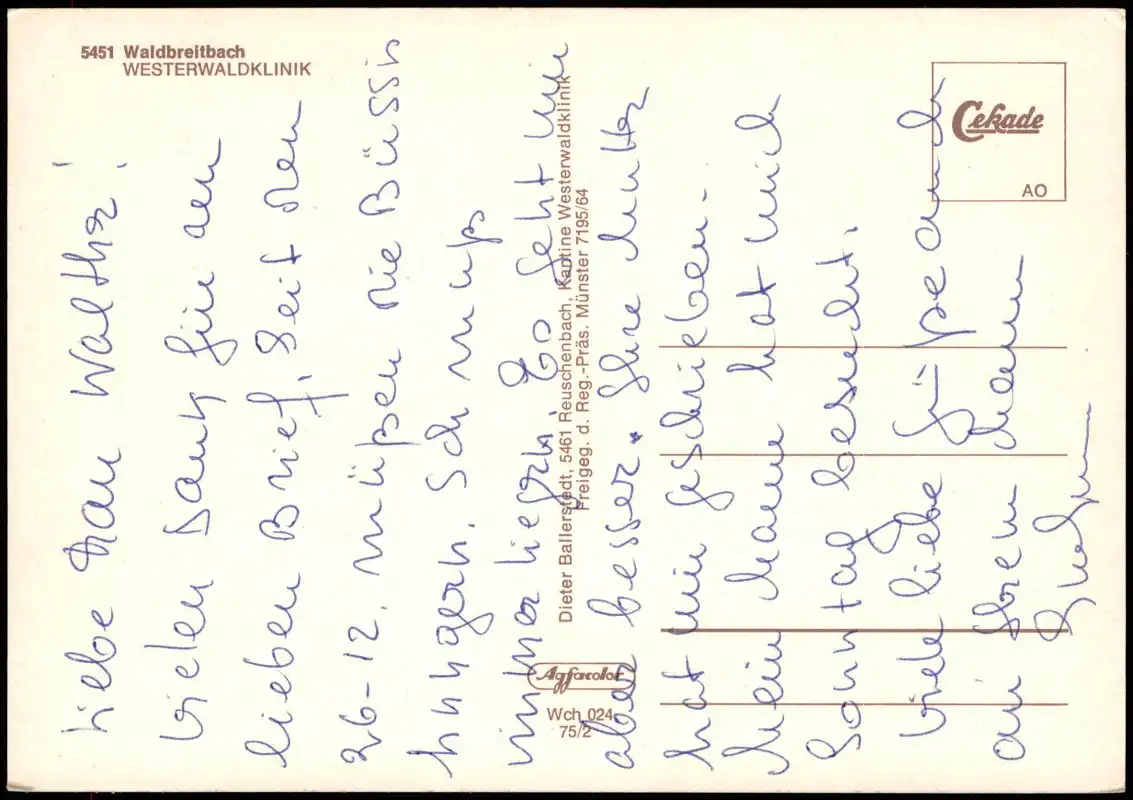 5451 Waldbreitbach
WESTERWALDKLINIK
Cekade
AO
Dieter Ballerstedt, 5461 Reuschenbach, Kantine Westerwaldklinik
Freigeg. d. Reg.-Präs. Münster 7195/64
Agfacolor
Wch 024
75/2
Liebe Frau Walther!
Vielen Dank für den
lieben Brief. Seit dem
26-12. müßen die
hungern. Ich muß
immer liegen. Es geht mir
aber besser. Ihre Mutter
hat mir geschrieben.
Mein Mann hat mich
Sonntag besucht.
Viele liebe Grüße auch
an Ihren Mann